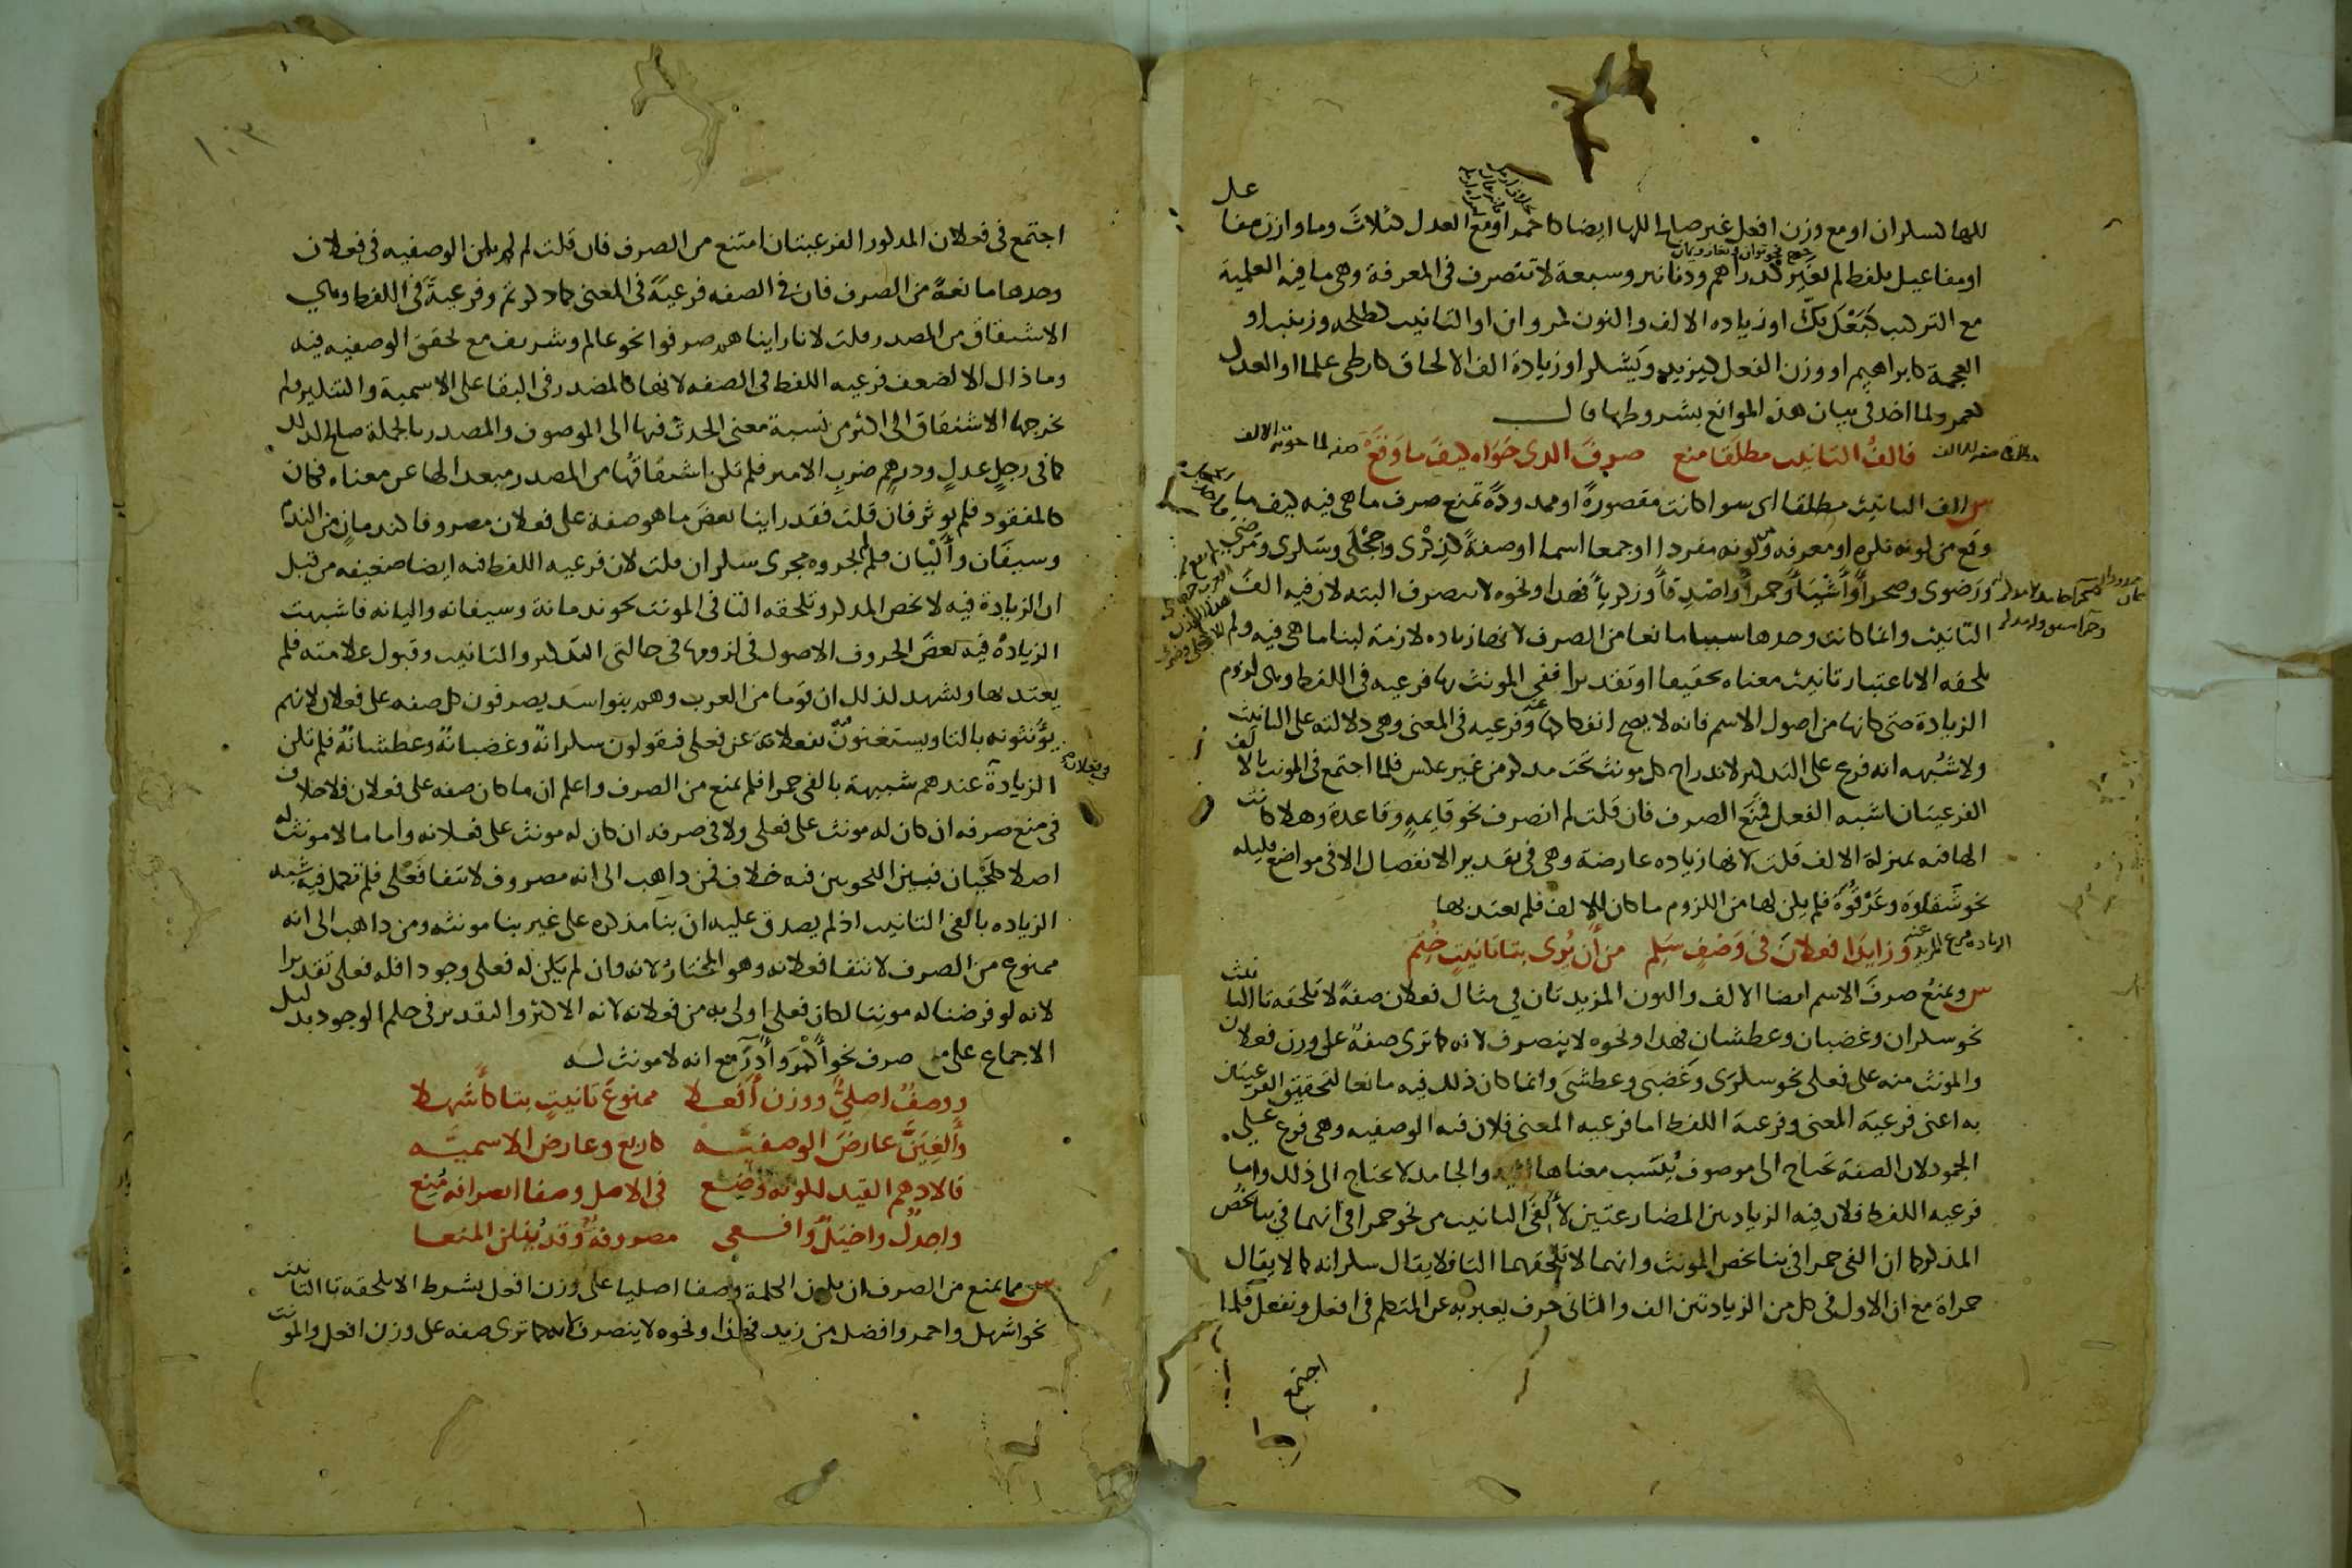 للها كسكران او مع وزن افعل غير صالح للها ايضا كاحمر او مع العدل كثلاثَ وما وازن مفاعل
او مفاعيل بلفظ لم يغير كدراهم ودنانير وسبعة لا تنصرف في المعرفة وهي ما فيه العلمية
مع التركيب كبَعْلَ بَكَّ او زياده الالف والنون كمروان او التانيث كطلحه وزينب او
العجمة كابراهيم او وزن الفعل كيزيد ويَشكر او زيادة الف الالحاق كارطى علما او العدل
كعمر ولما اخذ في بيان هذه الموانع بشروطها قال
فالفُ التانيث مطلقا منع صرفَ الذي حَوَاه كيفَ ما وَقَعْ
س الف التانيث مطلقا اي سوا كانت مقصورةً او ممدودةً تمنع صرف ما هي فيه كيف ما
وقع من كونه نكره او معرفه وكونه مفردا او جمعا اسما او صفةً كذِكْرى وحِجْلَى وسَكرى ومَرضى
ورَضوى وصحرا وأشْيَا وحمرا واصْدِقا وزكريا فهذا ونحوه لا ينصرف البته لان فيه الفَ
التانيث وانما كانت وحدها سببا مانعا من الصرف لانها زياده لازمة لبنا ما هي فيه ولم
يلحقه الا باعتبار تانيث معناه تحقيقا او تقديرا ففي المونث بها فرعيه في اللفظ وهي لزوم
الزيادة حتى كانها من اصول الاسم فانه لا يصح انفكاكها عنه وفرعيه في المعنى وهي دلالته على التانيث
ولا شبهه انه فرع على التذكير لاندراج كل مونث تحت مذكر من غير عكس فلما اجتمع في المونث بالالف
الفرعيتان اشبه الفعل فمُنِعَ الصرف فان قلت لم انصرف نحو قايمةٍ وقاعدةٍ وهلا كانت
الها فيه بمنزلة الالف قلت لانها زياده عارضة وهي في تقدير الانفصال الا في مواضع قليله
نحو شَقَاوَه وعَرْقُوَه فلم يكن لها من اللزوم ما كان للالف فلم يعتد بها
وزايدا فعلانَ في وَصْفٍ سَلِم من أن يُرى بتا تانيثٍ خُتم
س ويمنعُ صرفَ الاسم ايضا الالف والنون المزيدتان في مثال فعلان صفةً لا تلحقه تا التانيث
نحو سكران وغضبان وعطشان فهذا ونحوه لا ينصرف لانه كما ترى صفةً على وزن فعلان
والمونث منه على فعلى نحو سكرى وغَضبى وعطشى وانما كان ذلك فيه مانعا لتحقق الفرعيتان
به اعني فرعيَة المعنى وفرعية اللفظ اما فرعيه المعنى فلان فيه الوصفيه وهي فرع على
الجمود لان الصفة تحتاج الى موصوف يُنسَب معناها اليه والجامد لا يحتاج الى ذلك واما
فرعيه اللفظ فلان فيه الزيادتين المضارعتين لألفَي التانيث من نحو حمرا في انهما في بنا يخص
المذكر كما ان الفي حمرا في بنا يخص المونث وانهما لا تلحقهما التا فلا يقال سكرانه كما لا يقال
حمراة مع ان الاول في كل من الزيادتين الف والثاني حرف يعبر به عن المتكلم في افعل ونفعل فلما
اجتمع
١٠٣
اجتمع في فعلان المذكور الفرعيتان امتنع من الصرف فان قلت لم لم يكن الوصفيه في فعلان
وحدها مانعةً من الصرف فان في الصفه فرعيَّةً في المعنى كما ذكرتم وفرعيةً في اللفظ وهي
الاشتقاق من المصدر قلت لانا راينا هم صرفوا نحو عالم وشريف مع تحقق الوصفيه فيه
وما ذاك الا لضعف فرعيه اللفظ في الصفه لانها كالمصدر في البقا على الاسمية والتنكير ولم
يخرجها الاشتقاق الى اكثر من نسبة معنى الحدث فيها الى الموصوف والمصدر بالجملة صالح لذلك
كما في رجلٍ عدلٍ ودرهمٍ ضربِ الامير فلم يكن اشتقاقُها من المصدر مبعدا لها عن معناه فكان
كالمفقود فلم يوثر فان قلت فقد راينا بعضَ ما هو صفة على فعلان مصروفا كندمانٍ من الندم
وسيفَان وألْيَان فلِمَ لم يجروه مجرى سكران قلت لان فرعيه اللفظ فيه ايضا ضعيفه من قبل
ان الزيادة فيه لا تخص المذكر وتلحقه التا في المونث نحو ندمانة وسيفانه واليانه فاشبهت
الزيادهُ فيه بعضَ الحروف الاصول في لزومها في حالتي التذكير والتانيث وقبول علامته فلم
يعتد بها ويشهد لذلك ان قوما من العرب وهم بنو اسد يصرفون كل صفه على فعلان لانهم
يؤنثونه بالتا ويستغنون بفعلانة عن فعلى فيقولون سكرانةٌ وغضبانةٌ وعطشانةٌ فلم تكن
الزيادة عندهم شبيهة بالفي حمرا فلم تمنع من الصرف واعلم ان ما كان صفه على فعلان فلا خلاف
في منع صرفه ان كان له مونث على فعلى ولا في صرفه ان كان له مونث على فعلانه واما ما لا مونث له
اصلا كلحيان فبين النحويين فيه خلاف فمن ذاهب الى انه مصروف لانتفا فَعْلى فلم تكمل فيه شبه
الزياده بالفي التانيث اذ لم يصدق عليه ان بنا مذكره على غير بنا مونثه ومن ذاهب الى انه
ممنوع من الصرف لانتفا فعلانه وهو المختار لانه وان لم يكن له فعلى وجودا فله فعلى تقديرا
لانه لو فرضنا له مونثا لكان فعلى اولى به من فعلانه لانه الاكثر والتقدير في حكم الوجود بدليل
الاجماع على منع صرف نحو أكْمَرَ وأدَرَ مع انه لا مونث له
ووصفٌ اصليٌّ ووزن أفعلا ممنوعَ تانيثٍ بتا كأشهلا
وألغِيَنَّ عارضَ الوصفيَّه كاربع وعارض الاسميَّه
فالادهم القيد لكونه وُضِع في الاصل وصفا انصرافه مُنع
واجدلٌ واخيَلٌ وافعى مصروفةٌ وقد يَنَلن المنعا
س مما يمنع من الصرف ان يكون الكلمة وصفا اصليا على وزن افعل بشرط الا يلحقه تا التانيث
نحو اشهل واحمر وافضل من زيد فهذا ونحوه لا ينصرف لانه كما ترى صفه على وزن افعل والمونث